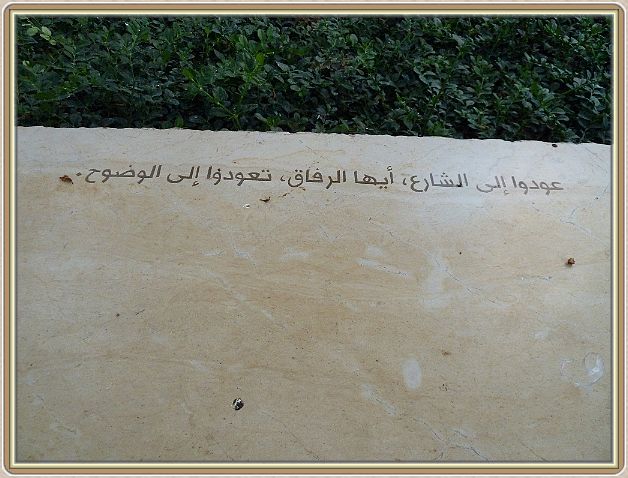 عودوا إلى الشارع، أيها الرفاق، تعودوا إلى الوضوح.